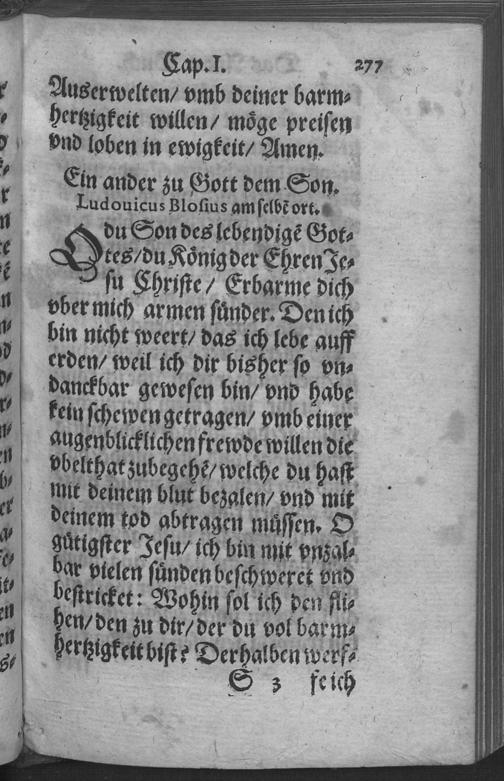 Cap. I. 277
Auserwelten/ vmb deiner barm-
hertzigkeit willen/ möge preisen
vnd loben in ewigkeit/ Amen.
Ein ander zu Gott dem Son.
Ludouicus Blosius am selbẽ ort.
O du Son des lebendigẽ Got-
tes/ du König der Ehren Je-
su Christe/ Erbarme dich
vber mich armen sünder. Den ich
bin nicht weert/ das ich lebe auff
erden/ weil ich dir bisher so vn-
danckbar gewesen bin/ vnd habe
kein schewen getragen/ vmb einer
augenblicklichen frewde willen die
vbelthat zubegehẽ/ welche du hast
mit deinem blut bezalen/ vnd mit
deinem tod abtragen müssen. O
gütigster Jesu/ ich bin mit vnzal-
bar vielen sünden beschweret vnd
bestricket: Wohin sol ich den fli-
hen/ den zu dir/ der du vol barm-
hertzigkeit bist? Derhalben werf-
S 3 fe ich